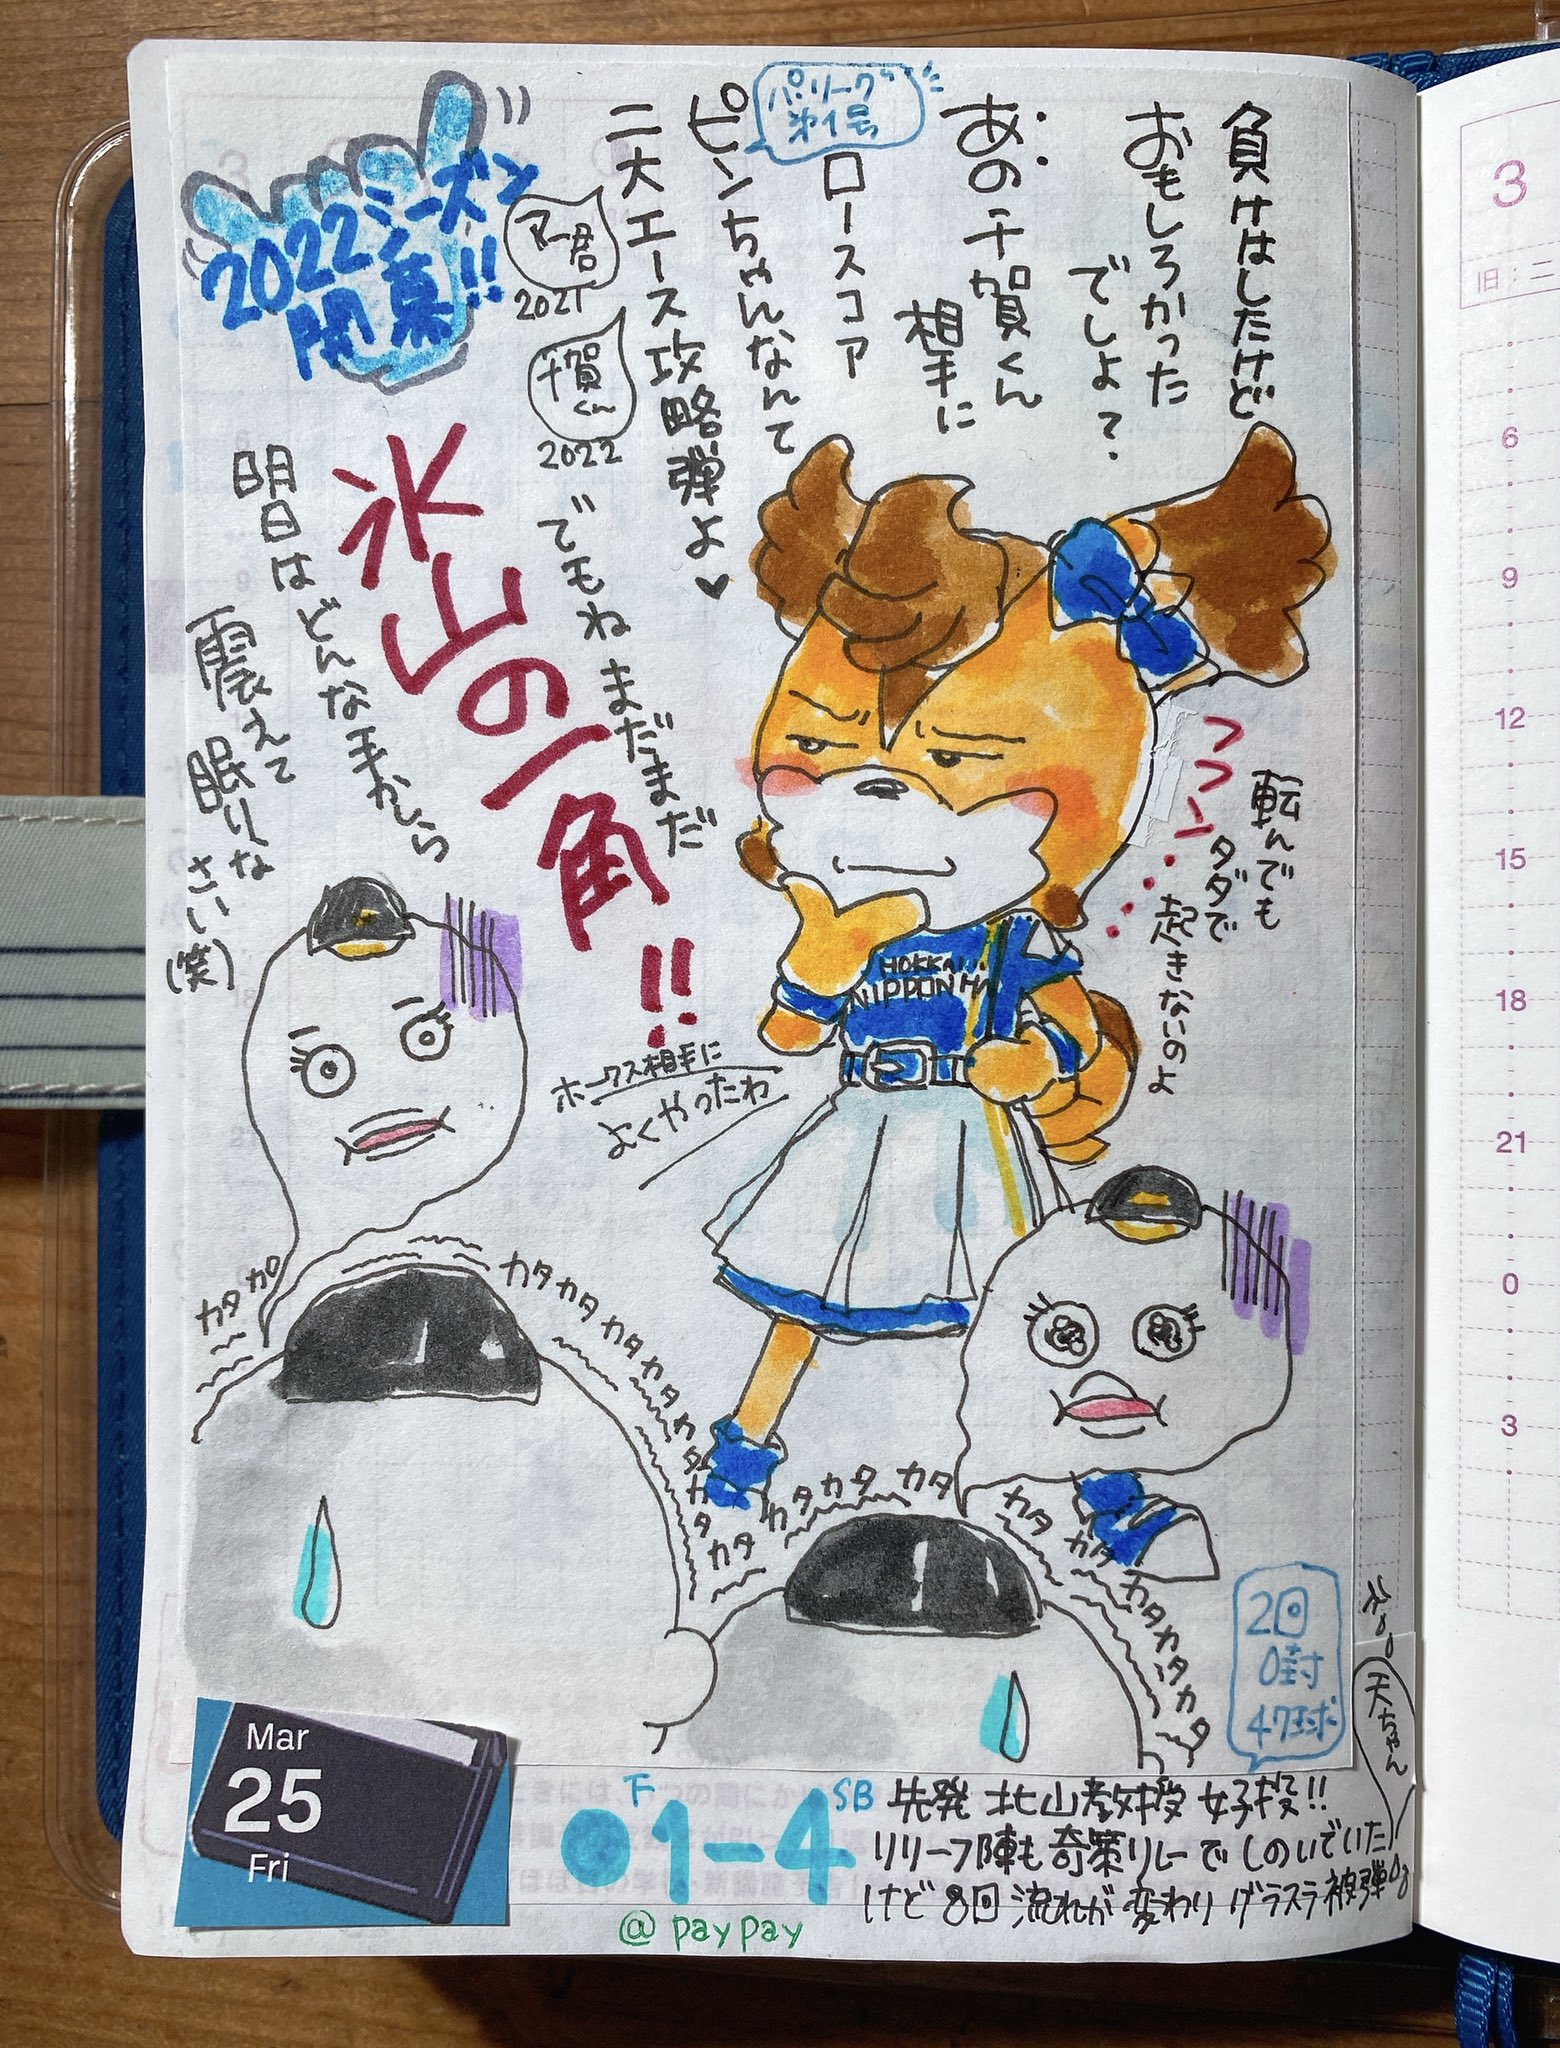 負けはしたけど
おもしろかった
でしょ?
あの千賀くん
相手に
パ・リーグ
第1号
ロースコア
ピンちゃんなんて
二大エース攻略弾よ♥
マー君
2021
千賀くん
2022
2022シーズン
開幕!!
でもねまだまだ
氷山の一角!!
明日はどんな手かしら
震えて
眠りな
さい(笑)
フフン・・・・
転んでも
タダで
起きないのよ
HOKKAI
NIPPON H
ホークス相手に
よくやったわ
カタカタ
カタカタカタカタカタカタカタカタ
カタカタカタカタ
カタカタカタカタカタカタ
2回
0封
47球
天ちゃん
Mar
25
Fri
F
SB
●1-4
@paypay
先発 北山教授 好投!!
リリーフ陣も奇策リレーでしのいでいた
けど8回流れが変わりグラスラ被弾
3
旧:二
6
9
12
15
18
21
0
3